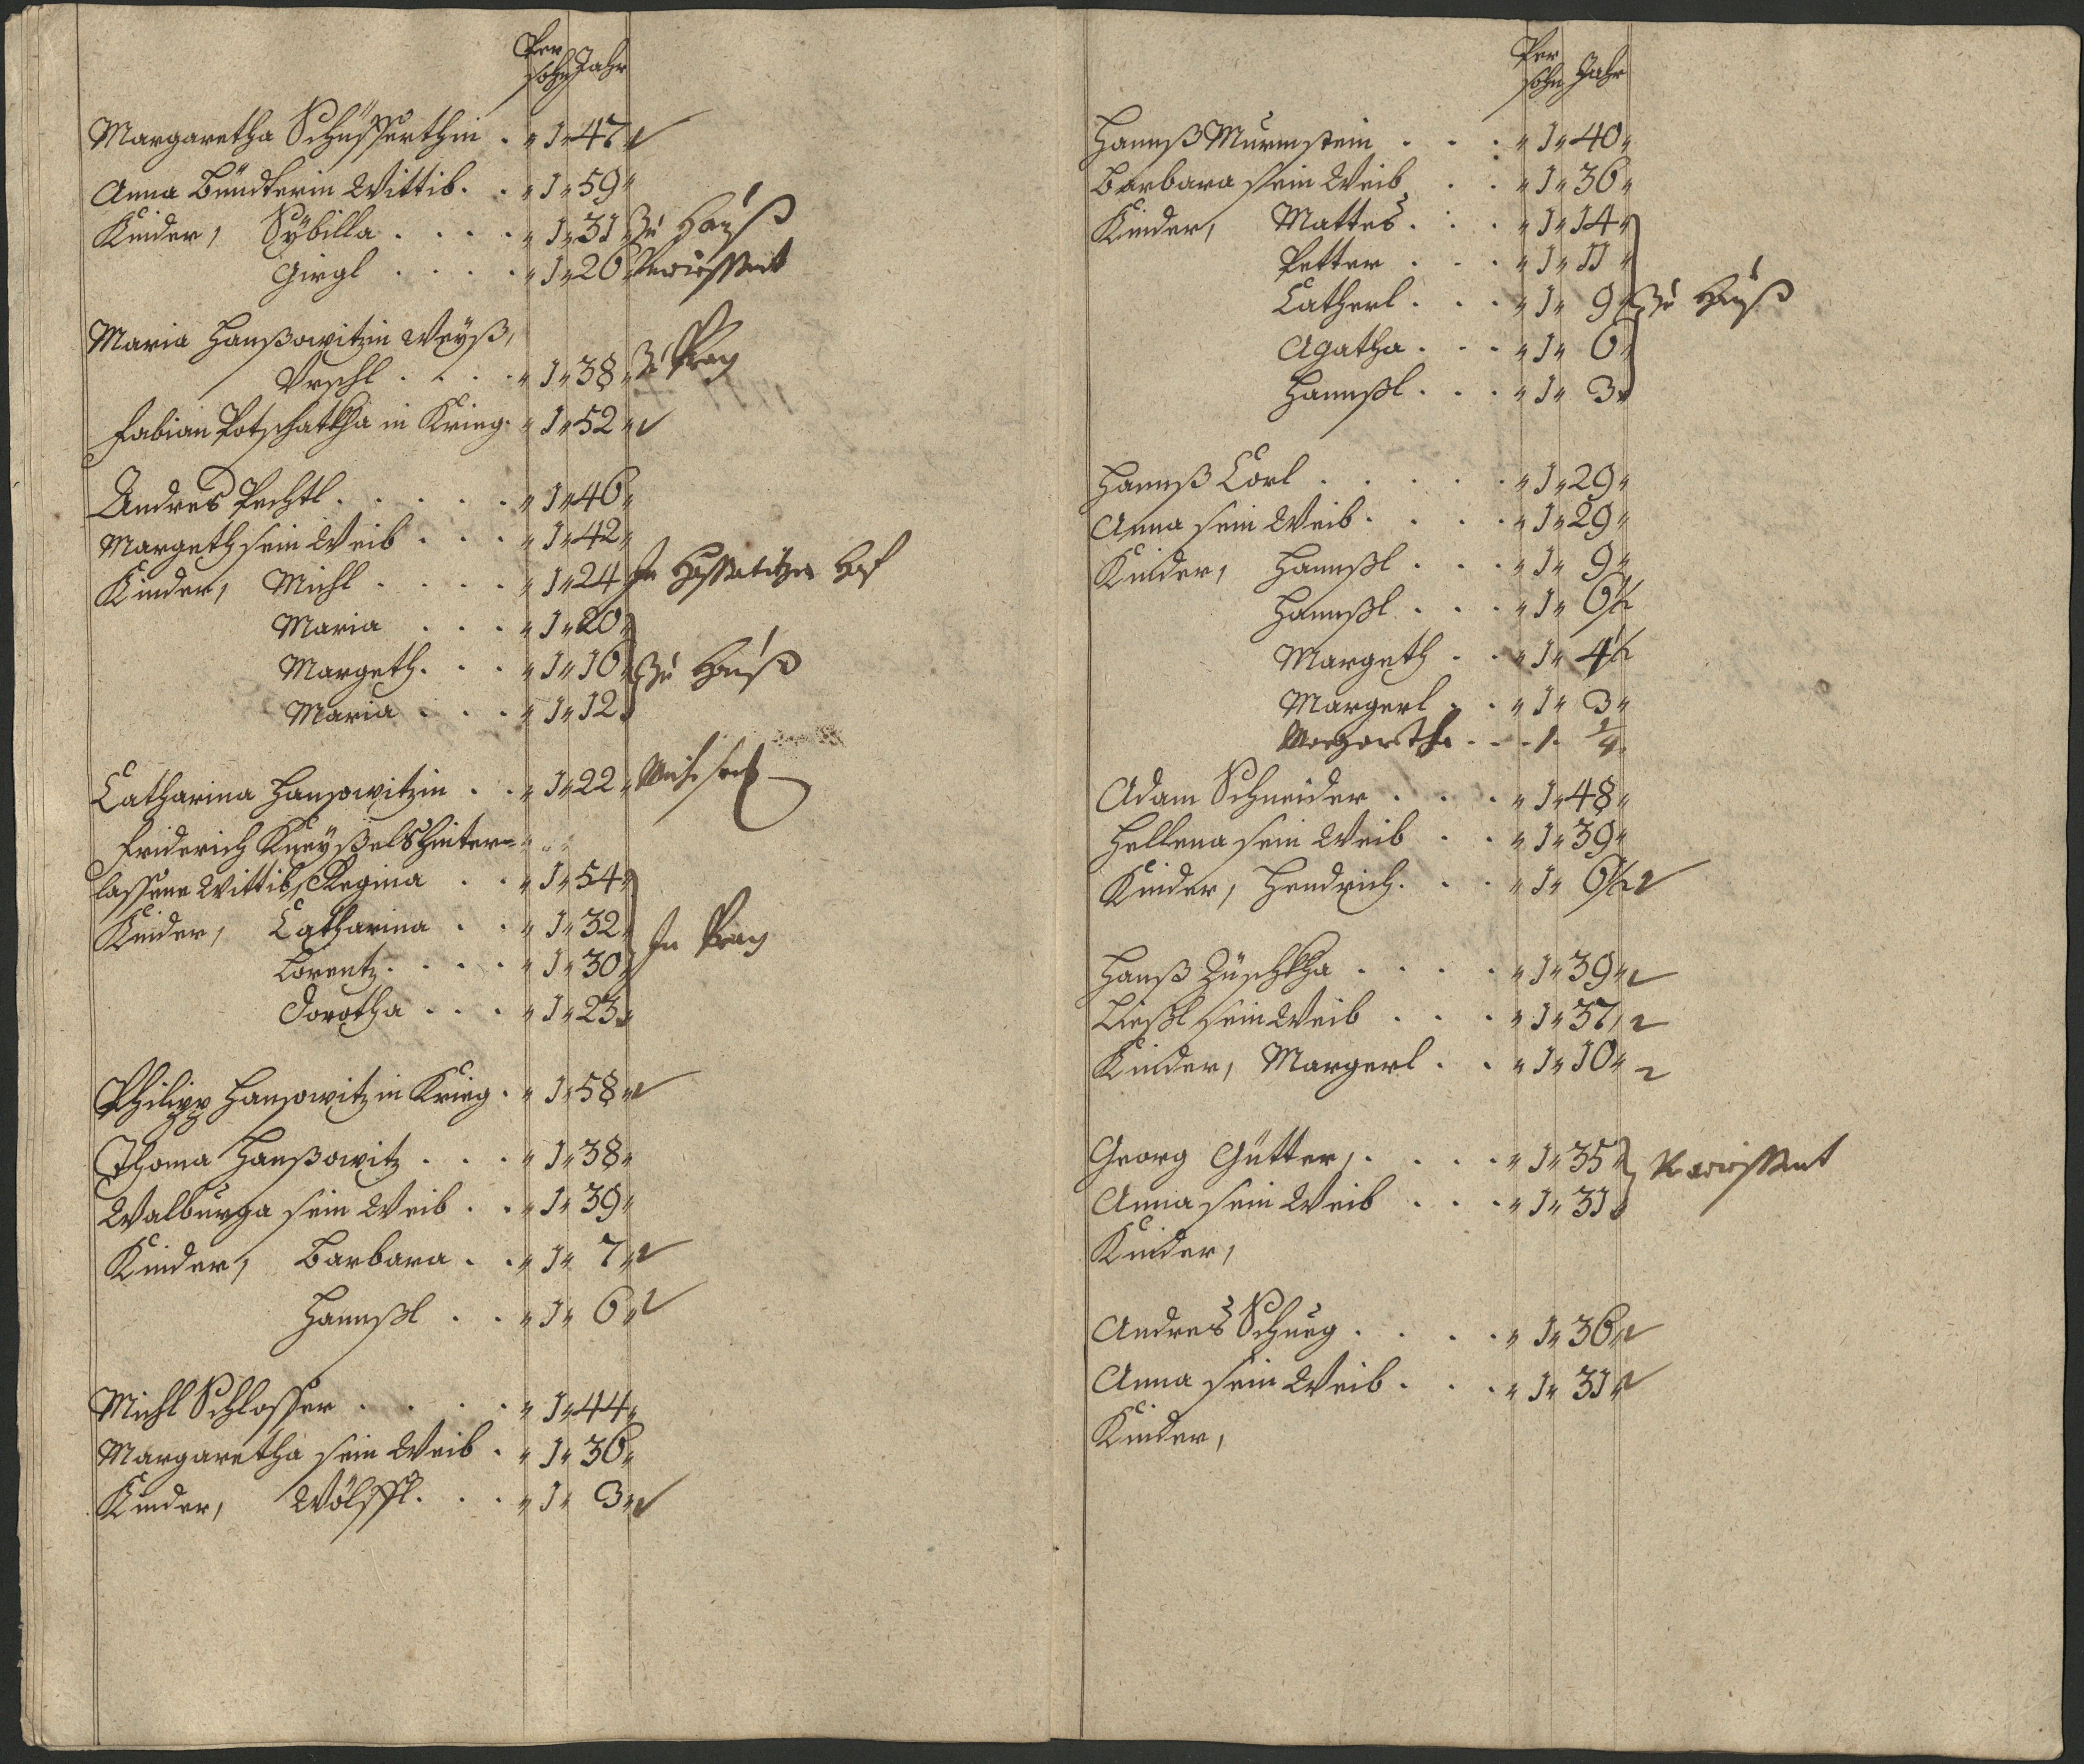 Persohn Jahr
Margaretha Schusserthin . 1 47
Anna Bündterin Wittib . . 1 59
Kinder, Sÿbilla . . . . 1 31 Zu Hauß
Girgl . . . . 1 20
Maria Hanßowitzin Weÿß,
Vrschl . . . . 1 38 Zu Prag
Fabian Potschatkha in Krieg . 1 52
Andres Pechtl . . . . . 1 46
Margeth sein Weib . . . 1 42
Kinder, Michl . . . . 1 24 Hof
Maria . . . 1 20
Margeth . . . 1 16 Zu Hauß
Maria . . . 1 12
Catharina Hansowitzin . . 1 22
Friderich Kneÿßels hinter=
lassene Wittib, Regina . . 1 54
Kinder, Catharina . . 1 32
Lorentz . . . . 1 30 In Prag
Dorotha . . . 1 23
Philipp Hansowitz in Krieg . 1 58
Thoma Hanßowitz . . . 1 38
Walburga sein Weib . . 1 39
Kinder, Barbara . . 1 7
Hannßl . . 1 6
Michl Schlosser . . . . 1 44
Margaretha sein Weib . 1 36
Kinder, Wölffl . . . 1 3
Persohn Jahr
Hannß Murmstein . . . 1 40
Barbara sein Weib . . 1 36
Kinder, Mattes . . . 1 14
Petter . . . 1 11
Catherl . . . 1 9 Zu Hauß
Agatha . . . 1 6
Hannßl . . . 1 3
Hannß Corl . . . . . 1 29
Anna sein Weib . . . . 1 29
Kinder, Hannßl . . . 1 9
Hannßl . . . 1 6½
Margeth . . 1 4½
Margerl . . 1 3
Margaretha . . . 1 ¼
Adam Schneider . . . 1 48
Hellena sein Weib . . 1 39
Kinder, Hendrich . . . 1 6½
Hanß Züschkha . . . . 1 39
Ließl sein Weib . . . 1 37
Kinder, Margerl . . 1 10
Georg Gütter, . . . . 1 35
Anna sein Weib . . . 1 31
Kinder,
Andres Schneg . . . . 1 36
Anna sein Weib . . . 1 31
Kinder,